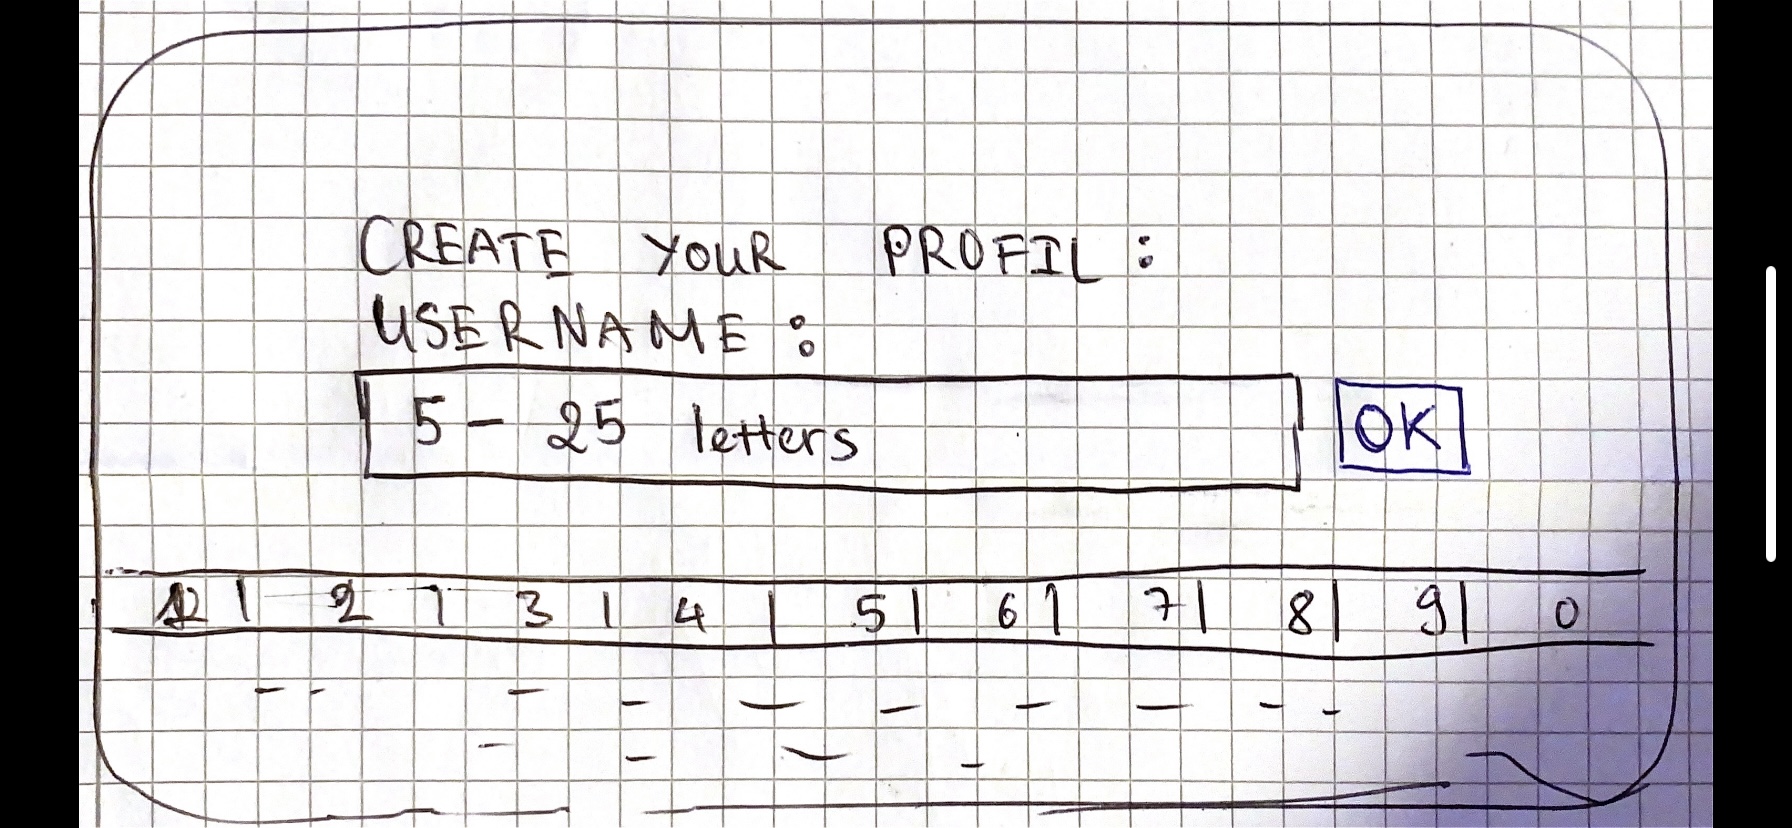 CREATE YOUR PROFIL :
USERNAME :
5 - 25 letters
OK
1 | 2 | 3 | 4 | 5 | 6 | 7 | 8 | 9 | 0